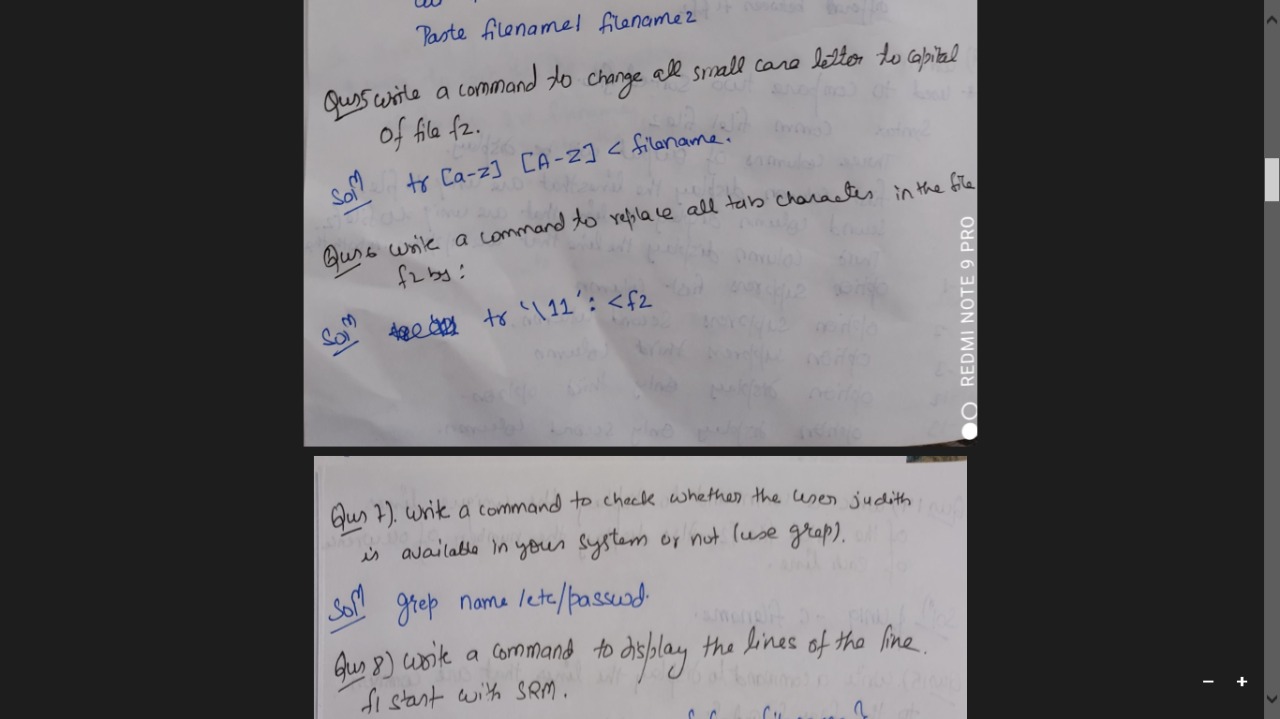 Paste filename1 filename2
Qus5 write a command to change all small case letter to capital
of file f2.
Solⁿ tr [a-z] [A-Z] < filename.
Qus6 write a command to replace all tab character in the file
f2 by :
Solⁿ tr '\11' : <f2
REDMI NOTE 9 PRO
Qus 7). Write a command to check whether the user judith
is available in your system or not (use grep).
Solⁿ grep name /etc/passwd.
Qus 8) Write a command to display the lines of the line.
f1 start with SRM.